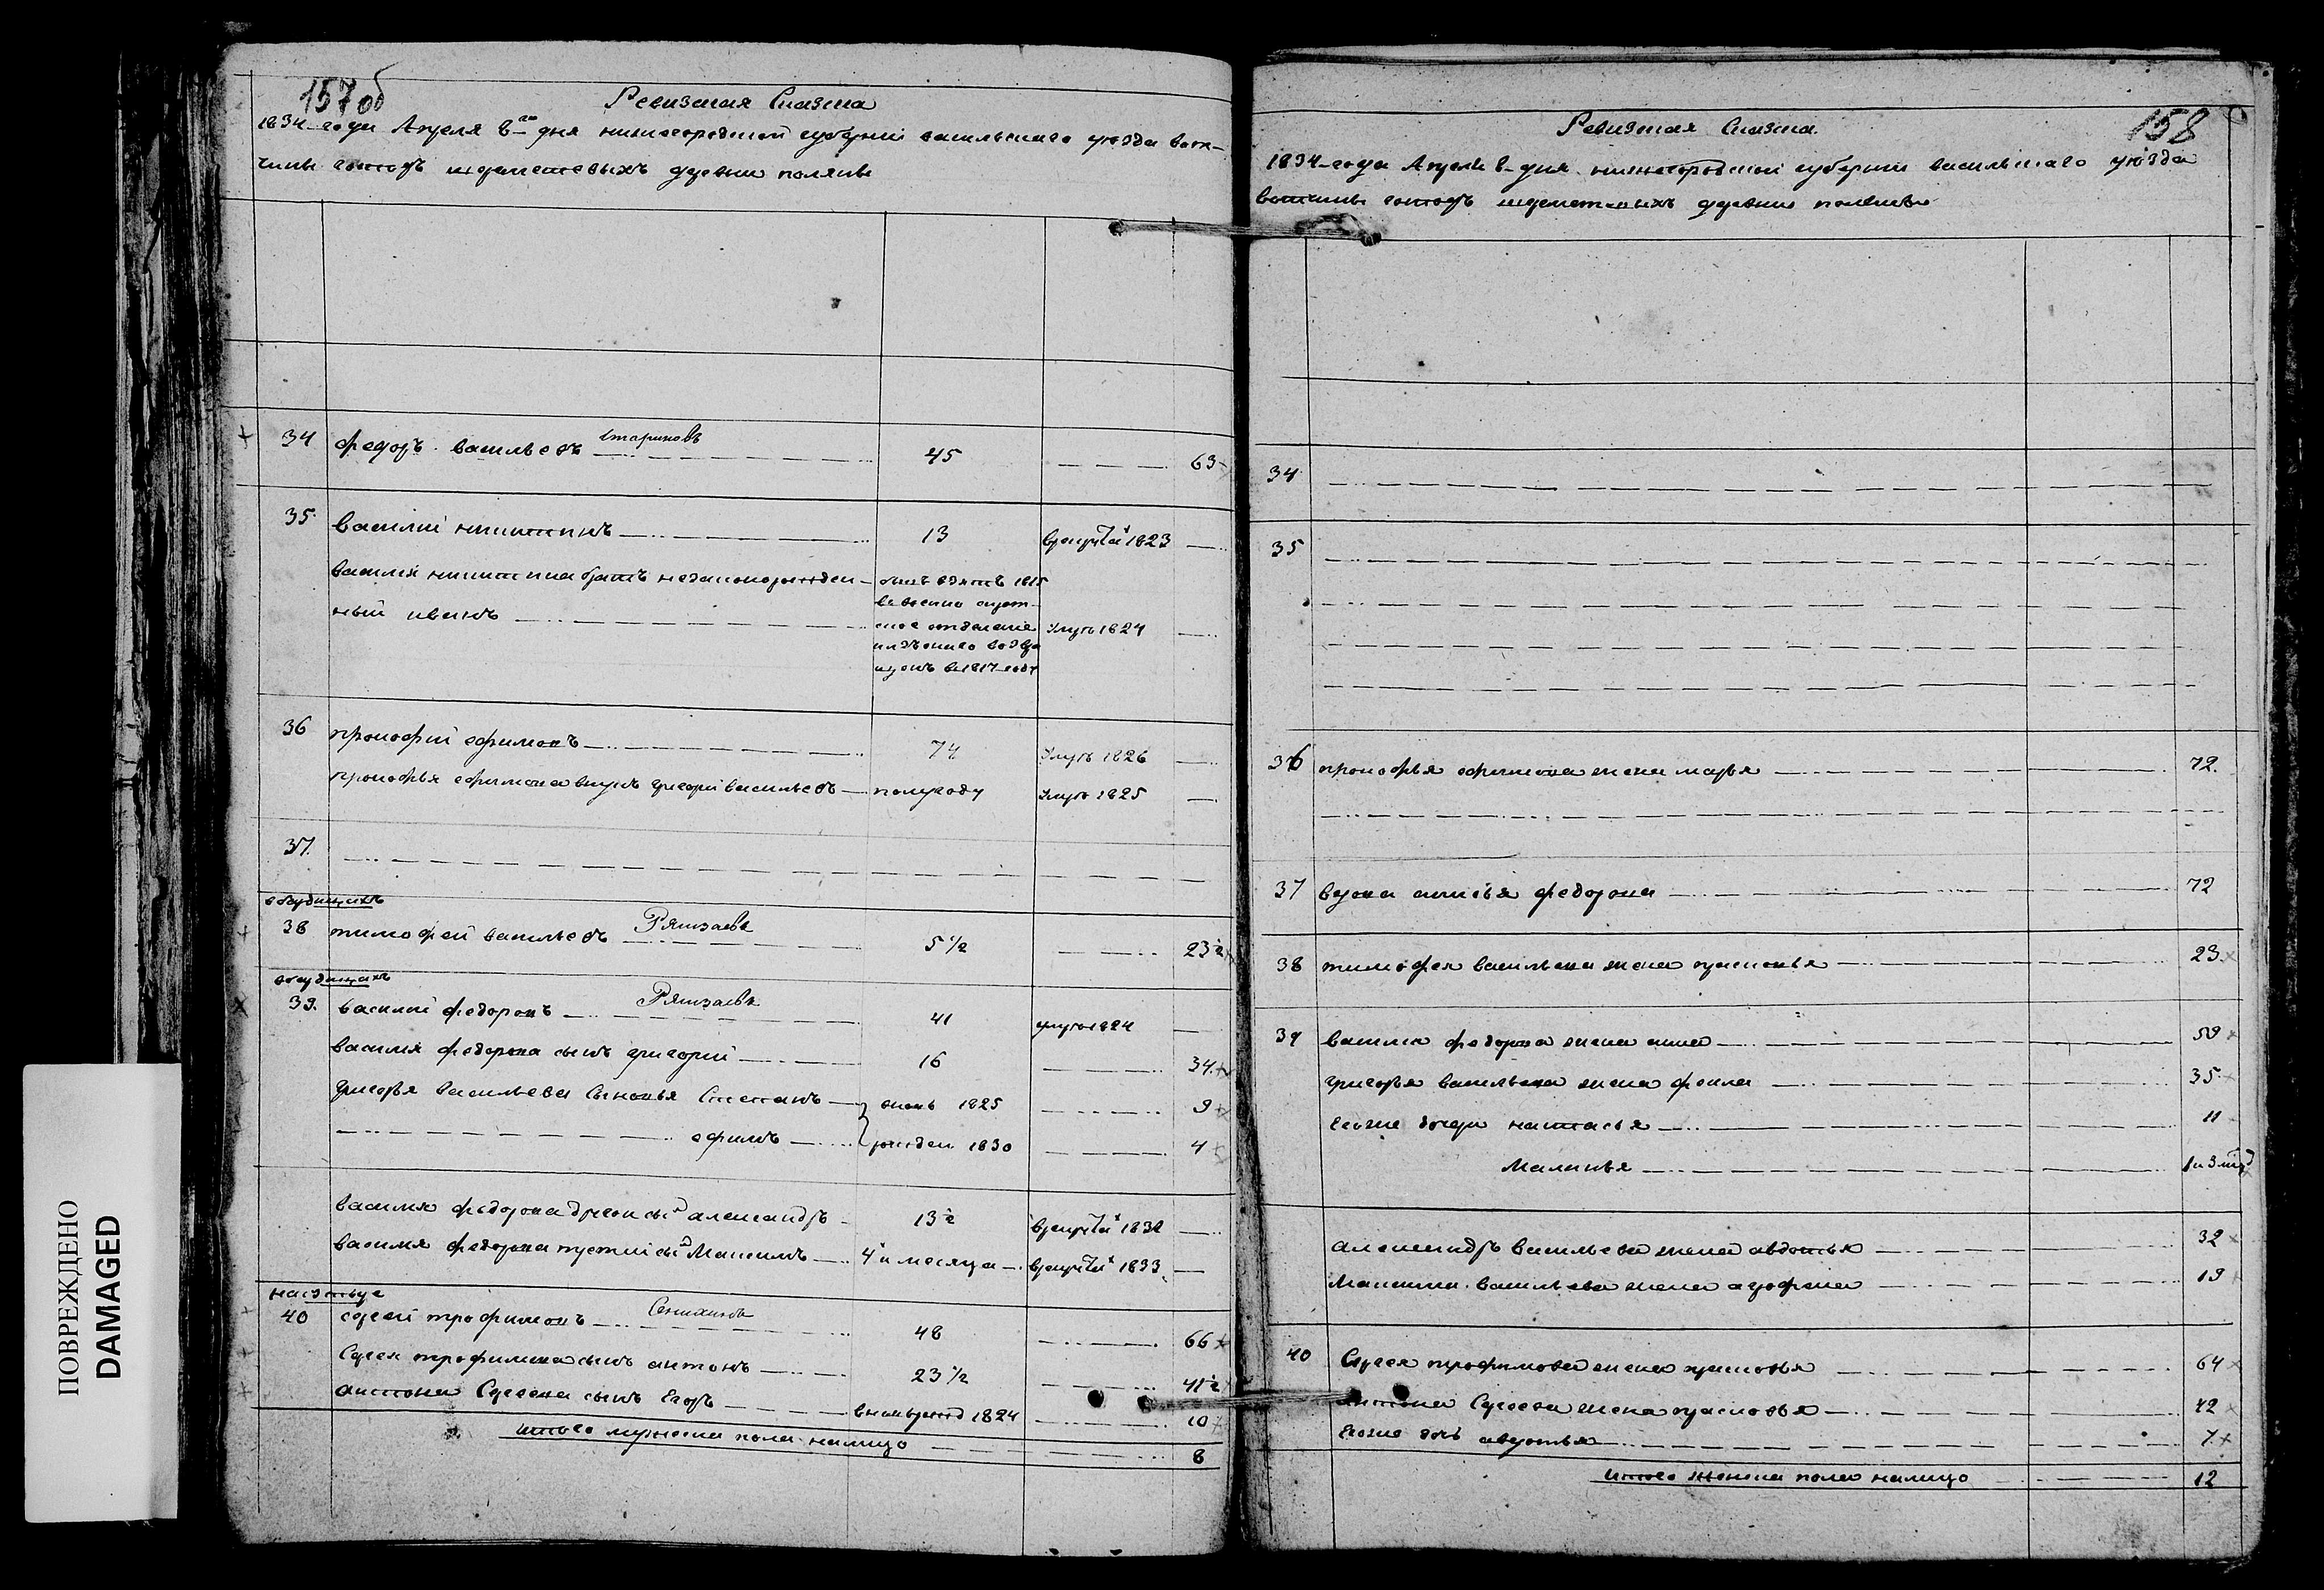 157 об
Ревизская Сказка
1834 года Апреля 8го дня нижегородской губернии васильскаго уезда вот-
чины господъ шереметевыхъ деревни поляны
34 федоръ васильевъ Стариковъ 45 63
35 василий никитинъ 13 в рекруты 1823
василья никитина братъ незаконорожден- былъ взятъ 1815
ный иванъ в военно сирот-
ское отделение умръ 1824
возвра
щенъ в 1817 году
36 прокофий ефимовъ 74 умръ 1826
прокофья ефимова внукъ григорий васильевъ полугоду умръ 1825
37
38 тимофей васильевъ Рямзаевъ 5 1/2 23 1/2
39 василий федоровъ Рямзаевъ 41 умръ 1824
василья федорова сынъ григорий 16 34
григорья васильева Сыновья Степанъ вновь 1825 9
ефимъ рожден 1830 4
василья федорова другой сы александръ 13 1/2 в рекруты 1832
василья федорова третий сы Максимъ 4 месяца в рекруты 1833
40 сергей трофимовъ 48 66
Сергея трофимова сынъ антонъ 23 1/2 41 1/2
антона Сергеева сынъ Егоръ вновь рожд 1824 10
итого мужеска пола налицо 8
158
Ревизская Сказка
1834 года Апреля 8 дня нижегородской губернии васильскаго уезда
вотчины господъ шереметевыхъ деревни поляны
34
35
36 прокофья ефимова жена марья 72
37 вдова федорова 72
38 тимофея васильева жена прасковья 23
39 василья федорова жена анна 59
григорья васильева жена фекла 35
Егоже дочери настасья 11
Маланья 1 и 3 мца
александръ васильева жена авдотья 32
Максима васильева жена аграфена 19
40 Сергея трофимова жена прасковья 64
антона Сергеева жена прасковья 42
Егоже дочь авдотья 7
итого женска пола налицо 12
ПОВРЕЖДЕНО
DAMAGED